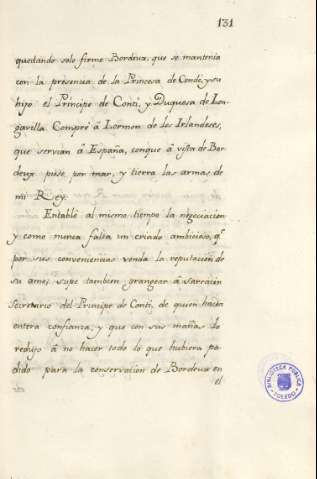 131
quedando solo firme Bordeux, que se mantenia
con la presencia de la Princesa de Conde, y su
hijo el Principe de Conti, y Duquesa de Lon-
gavilla. Compré â Lormon de los Irlandeses,
que servian â España, conque â vista de Bor-
deux puse por mar, y tierra las armas de
mi Rey.
Entablé al mismo tiempo la negociacion
y como nunca falta un criado ambicioso, q.e
por sus conveniencias venda la reputacion de
su amo, supe tambien grangear â Saracin
Secretario del Principe de Conti, de quien hacia
entera confianza, y que con sus mañas lo
redujo â no hacer todo lo que hubiera po-
dido para la conservacion de Bordeux en
el
BIBLIOTECA PÚBLICA
TOLEDO